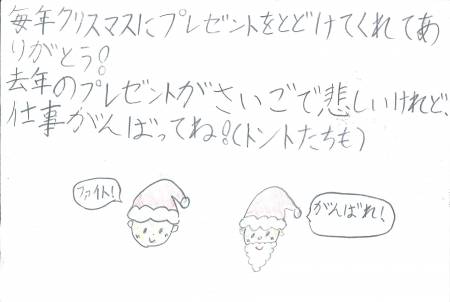 毎年クリスマスにプレゼントをとどけてくれてあ
りがとう!
去年のプレゼントがさいごで悲しいけれど、
仕事がんばってね!(トントたちも)
ファイト!
がんばれ!